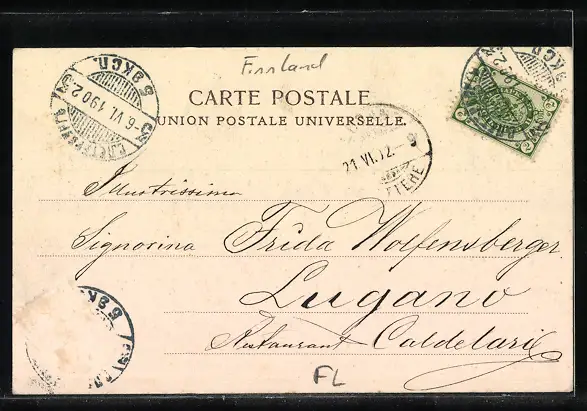 Finnland
CARTE POSTALE
UNION POSTALE UNIVERSELLE.
5 ЭКСП.
-6 VI 1902
21.VI.02.-9
Illustrissima
Signorina Frida Wolfensberger
Lugano
Restaurant Caldelari
FL